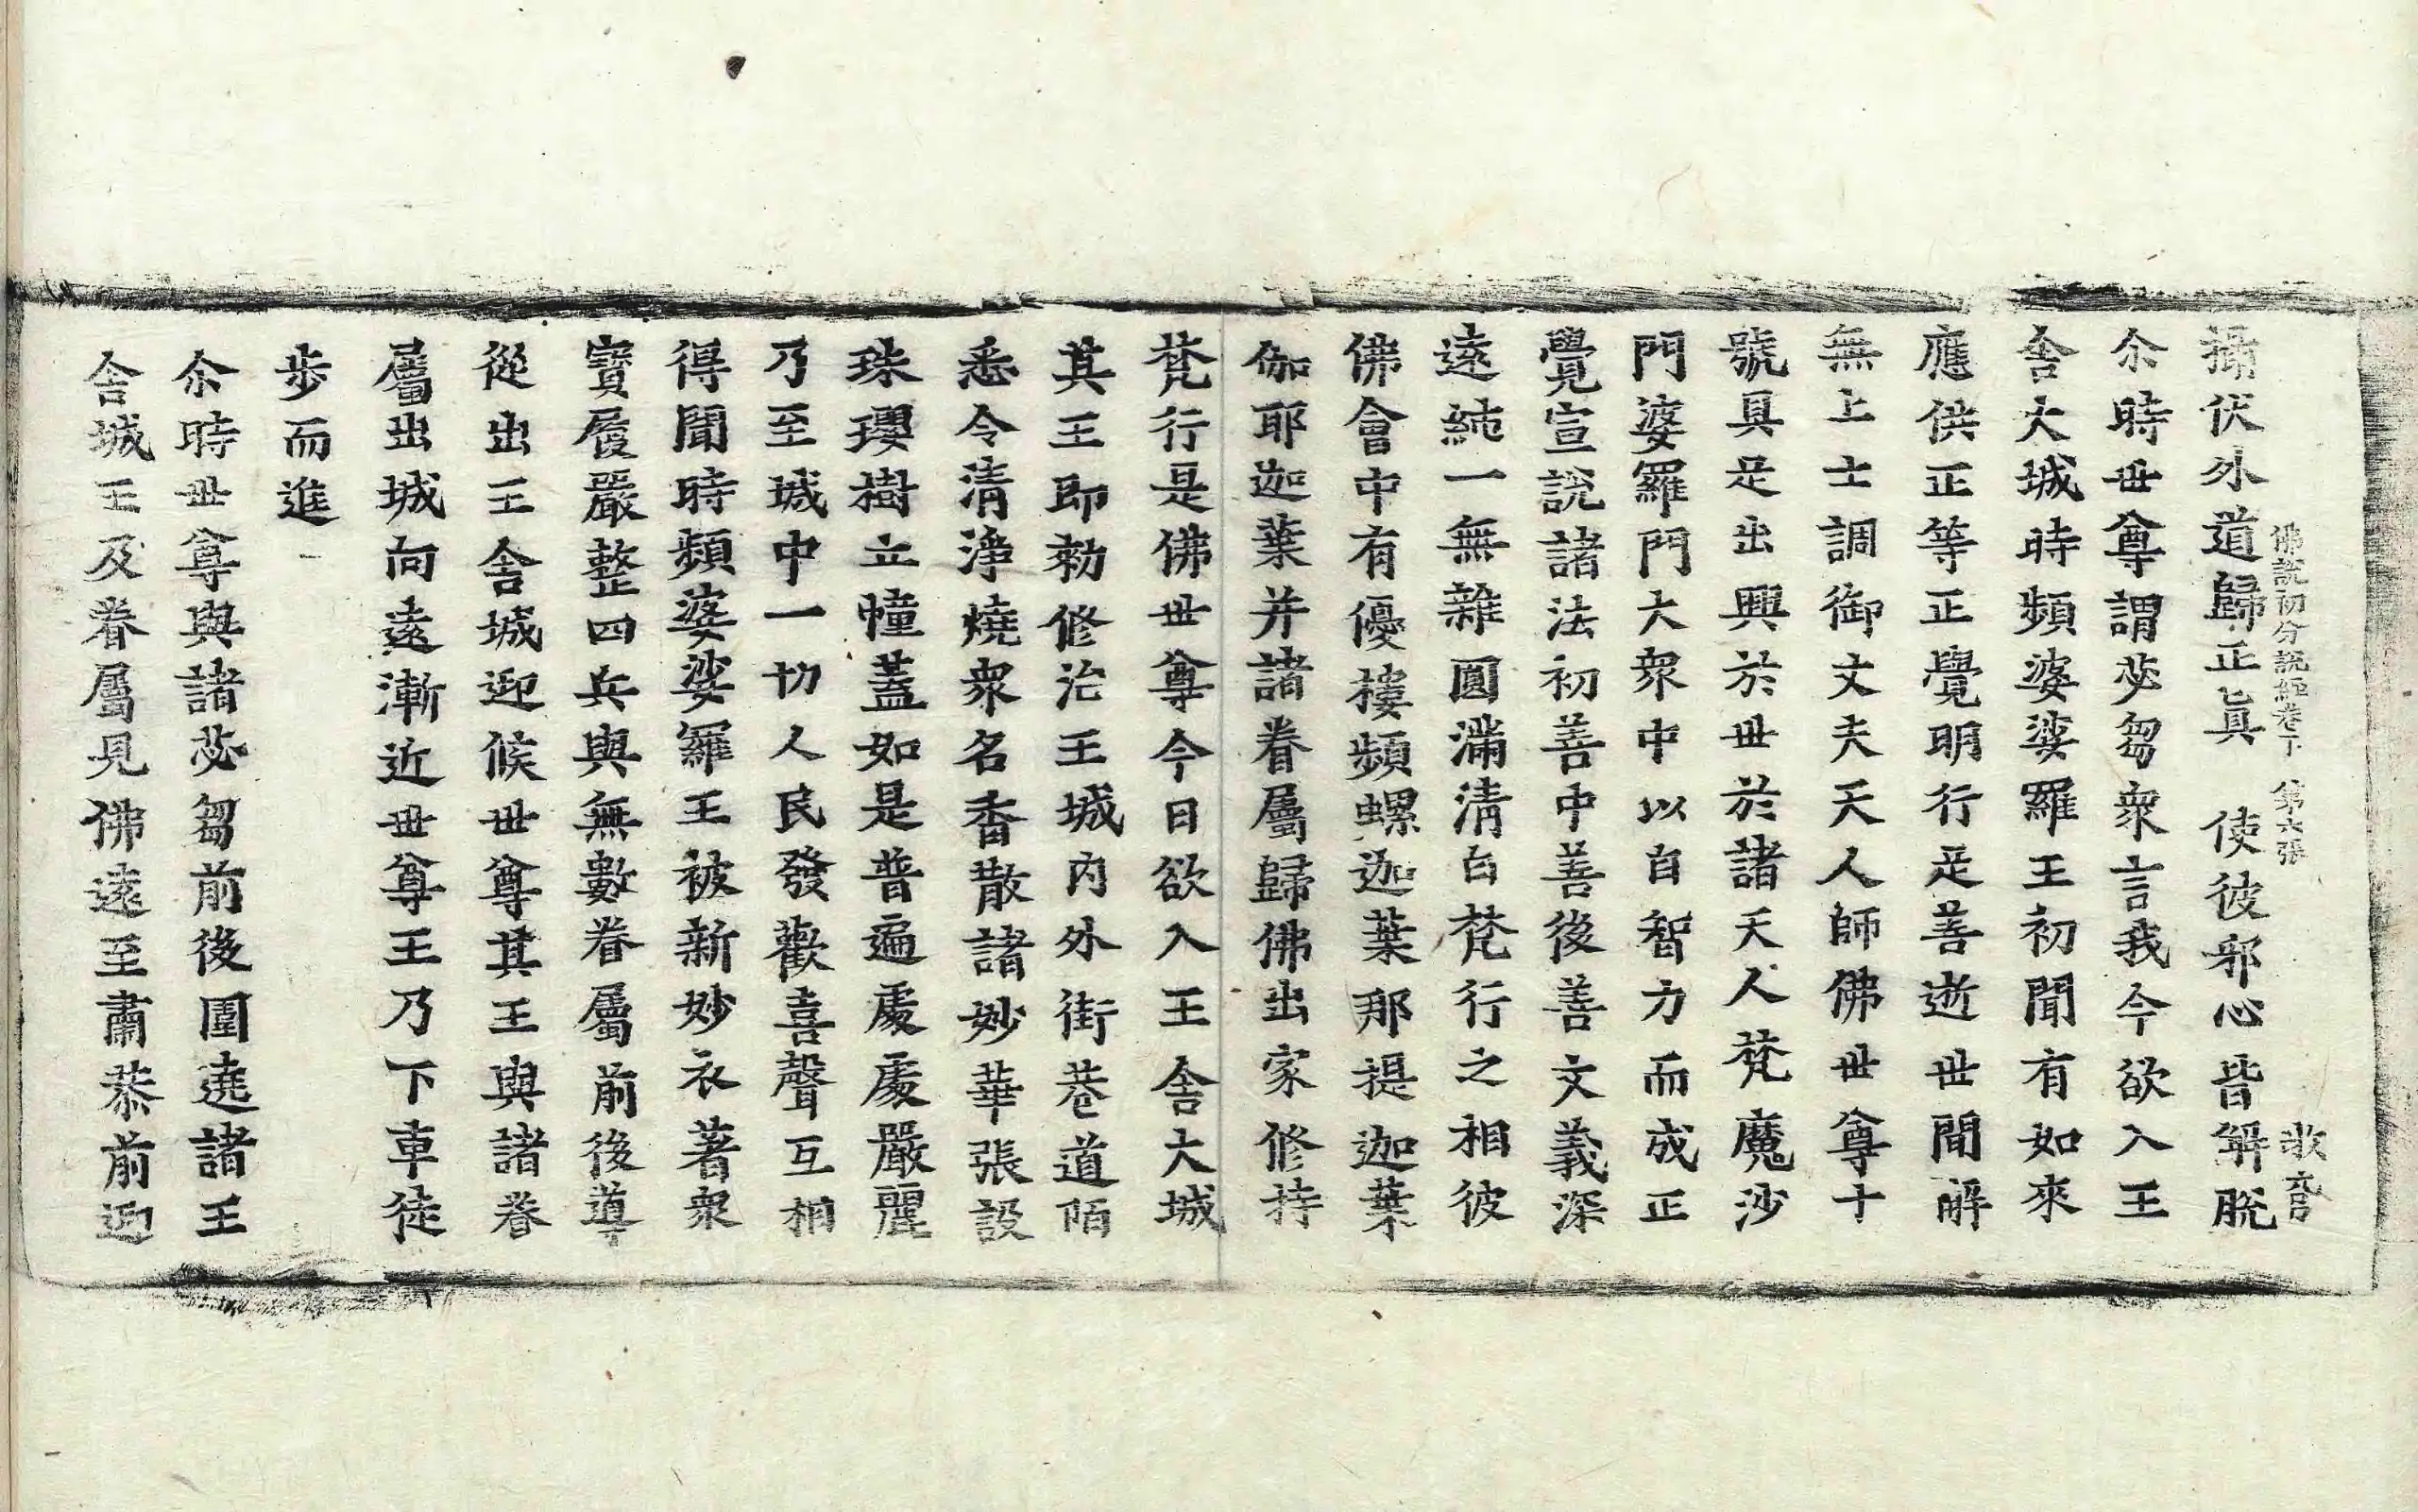 佛說初分說經卷下 第六張 歌言
攝伏外道歸正眞 使彼邪心皆解脫
尒時世尊謂苾芻衆言我今欲入王
舍大城時頻婆娑羅王初聞有如來
應供正等正覺明行足善逝世間解
無上士調御丈夫天人師佛世尊十
號具足出興於世於諸天人梵魔沙
門婆羅門大衆中以自智力而成正
覺宣說諸法初善中善後善文義深
遠純一無雜圓滿清白梵行之相彼
佛會中有優樓頻螺迦葉那提迦葉
伽耶迦葉并諸眷屬歸佛出家修持
梵行是佛世尊今日欲入王舍大城
其王即勑修治王城內外街巷道陌
悉令清淨燒衆名香散諸妙華張設
珠瓔樹立幢蓋如是普遍處處嚴麗
乃至城中一切人民發歡喜聲互相
得聞時頻婆娑羅王被新妙衣著衆
寶履嚴整四兵與無數眷屬前後導
從出王舍城迎候世尊其王與諸眷
屬出城向遠漸近世尊王乃下車徒
步而進
尒時世尊與諸苾芻前後圍遶諸王
舍城王及眷屬見佛遠至肅恭前迎